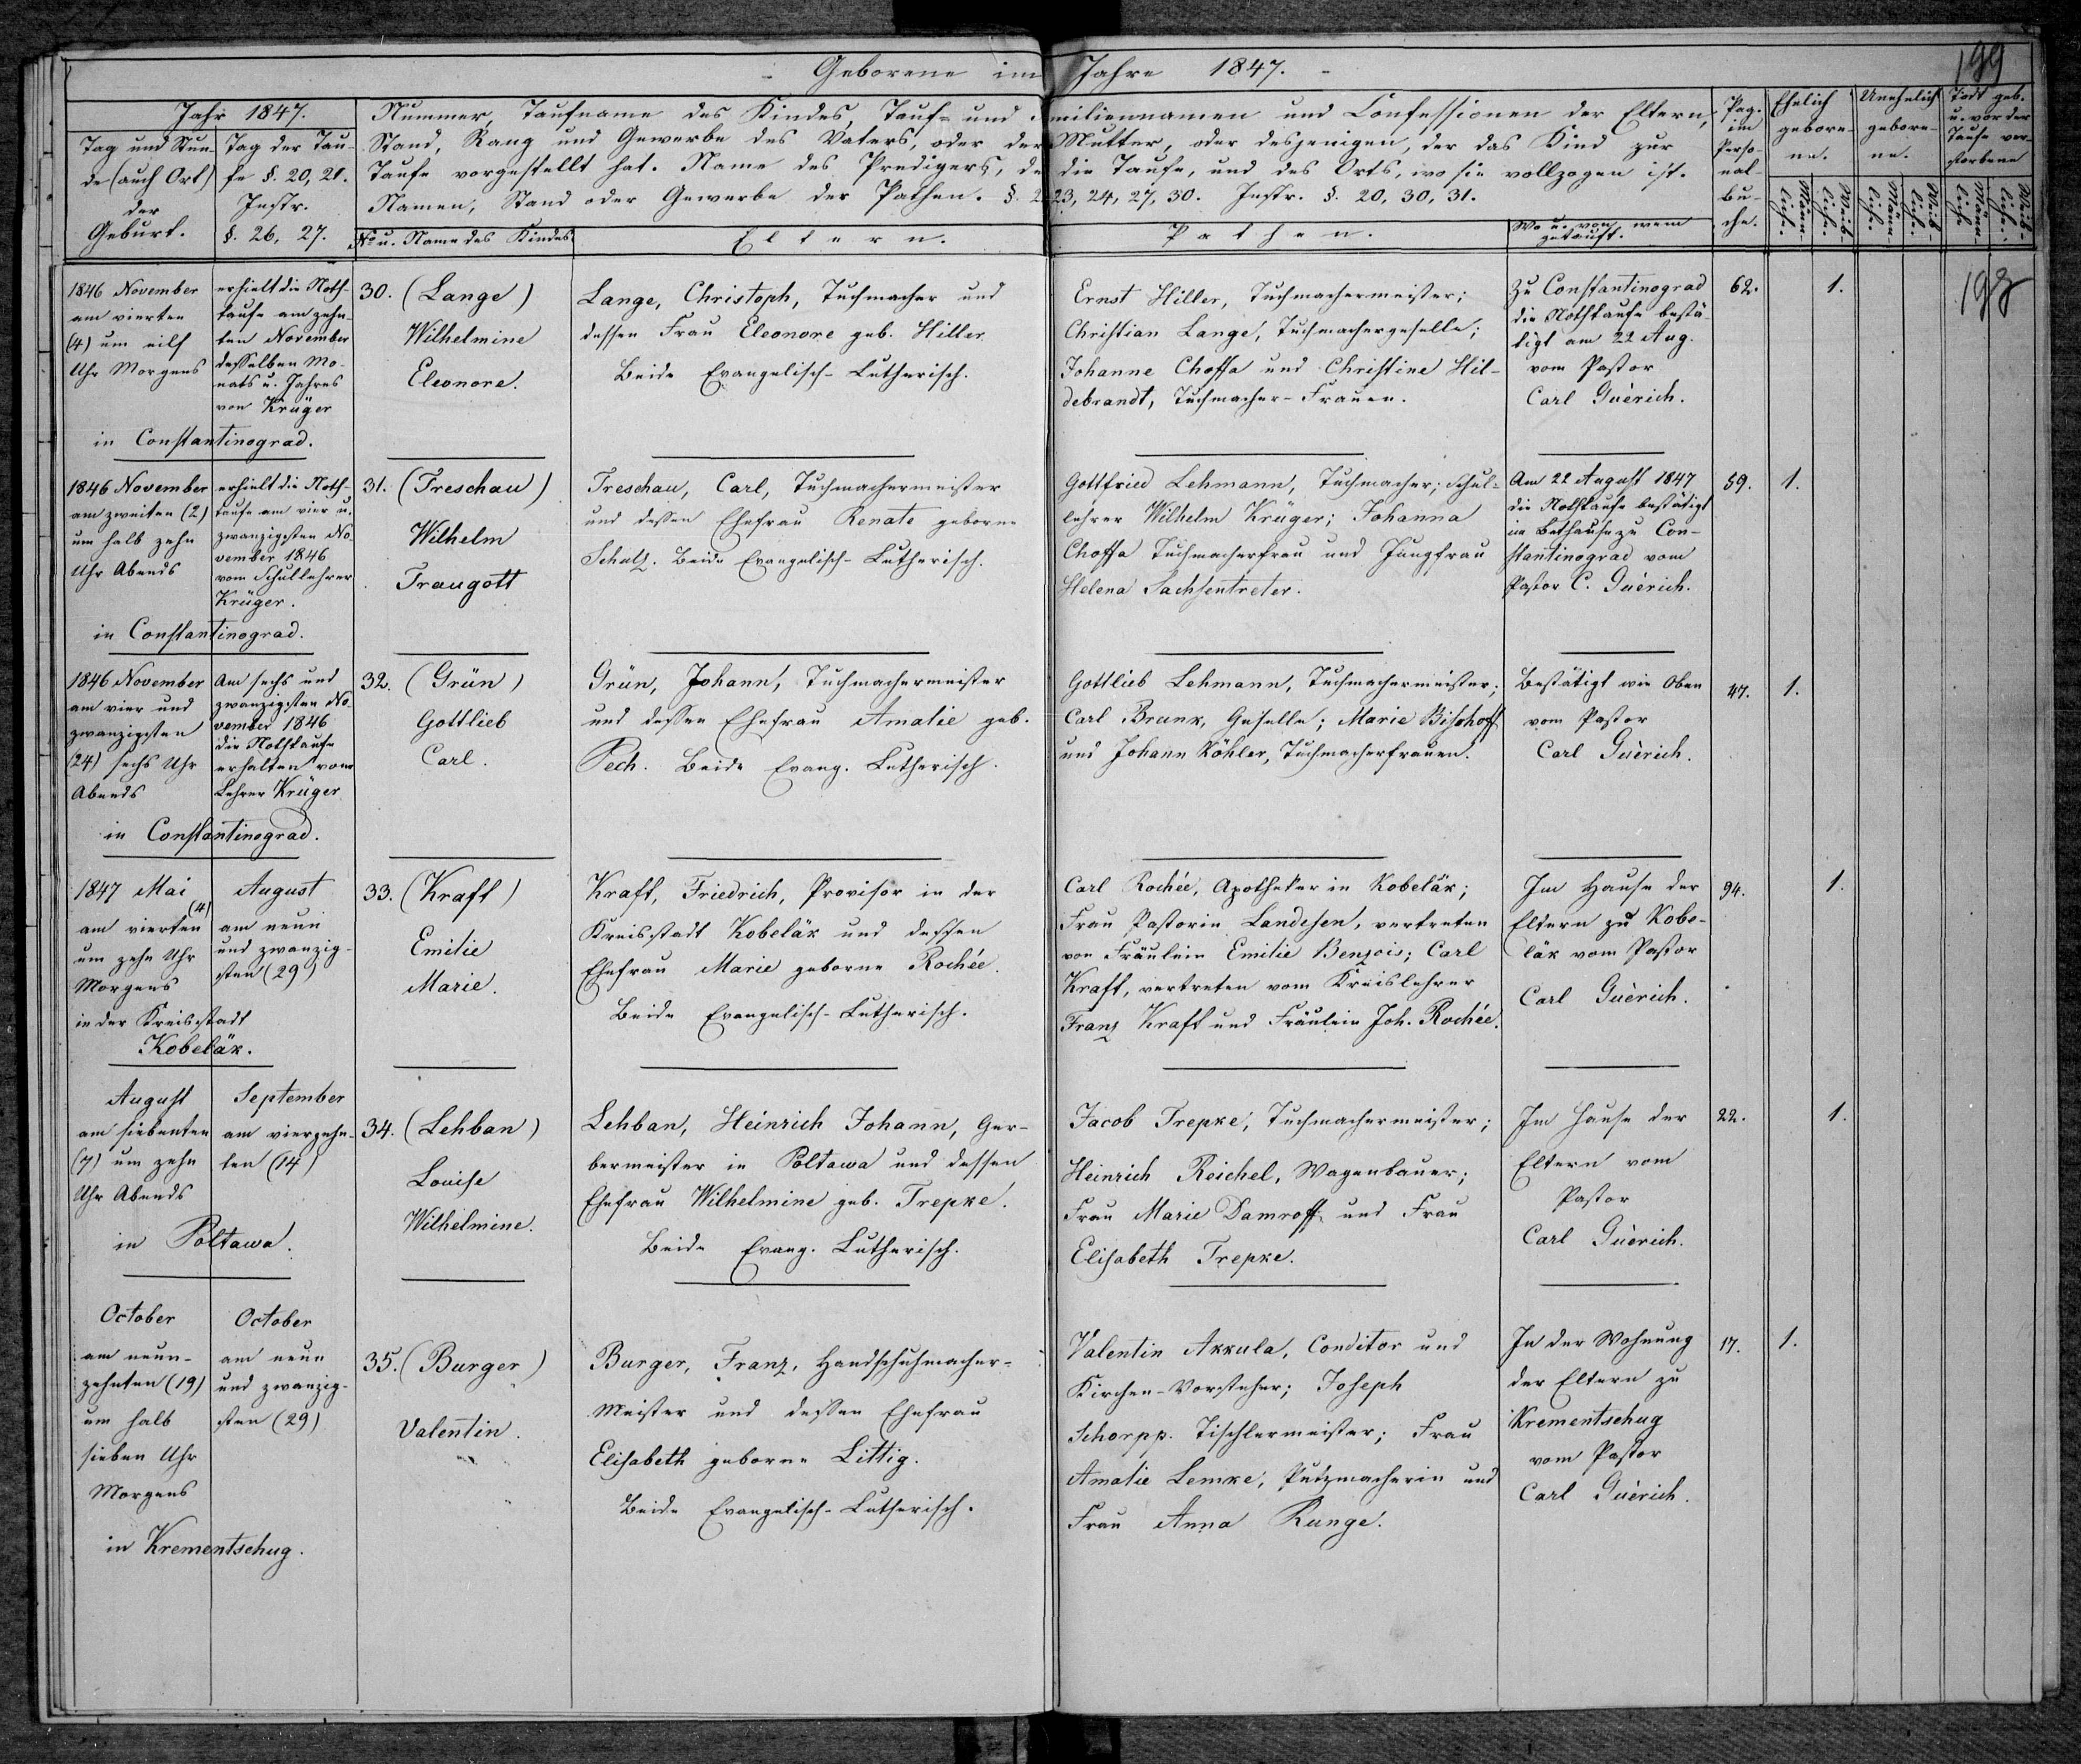 Geborene im Jahre 1847.
199
Jahr 1847.
Tag und Stun-
de (auch Ort)
der
Geburt.
Tag der Tau-
fe §. 20, 21.
Instr.
§. 26, 27.
Nummer, Taufname des Kindes, Tauf- und miliennamen und Confessionen der Eltern,
Stand, Rang und Gewerbe des Vaters, oder der Mutter, oder desjenigen, der das Kind zur
Taufe vorgestellt hat. Name des Predigers, de die Taufe, und des Orts, wo sie vollzogen ist.
Namen, Stand oder Gewerbe der Pathen. §. 23, 24, 27, 30. Instr. §. 20, 30, 31.
No u. Name des Kindes.
Eltern.
Pathen.
Wo u. von wem
getauft.
Pag.
im
Perso-
nal-
bu-
che.
Ehelich
gebore-
ne.
Unehelich
gebore-
ne.
Todt geb.
u. vor der
Taufe ver-
storbene
Männ-
liche.
Weib-
liche.
Männ-
liche.
Weib-
liche.
Männ-
liche
Weib-
liche.
1846 November
am vierten
(4) um eilf
Uhr Morgens
in Constantinograd.
erhielt die Noth-
taufe am zehn-
ten November
desselben Mo-
nats u. Jahres
von Krüger
30. (Lange)
Wilhelmine
Eleonore.
Lange, Christoph, Tuchmacher und
dessen Frau Eleonore geb. Hiller
Beide Evangelisch-Lutherisch.
Ernst Hiller, Tuchmachermeister;
Christian Lange, Tuchmachergeselle;
Johanne Choffa und Christine Hil-
debrandt, Tuchmacher-Frauen.
Zu Constantinograd
die Nothtaufe bestä-
tigt am 22 Aug.
vom Pastor
Carl Guèrich.
62.
1.
198
1846 November
am zweiten (2)
um halb zehn
Uhr Abends
in Constantinograd.
erhielt die Noth-
taufe am vier u.
zwanzigsten No-
vember 1846
vom Schullehrer
Krüger.
31. (Treschau)
Wilhelm
Traugott
Treschau, Carl, Tuchmachermeister
und dessen Ehefrau Renate geborne
Schulz. Beide Evangelisch-Lutherisch.
Gottfried Lehmann, Tuchmacher; Schul-
lehrer Wilhelm Krüger; Johanna
Choffa Tuchmacherfrau und Jungfrau
Helena Sachsentreter.
Am 22 August 1847
die Nothtaufe bestätigt
im Bethause zu Con-
stantinograd vom
Pastor C. Guèrich.
59.
1.
1846 November
am vier und
zwanzigsten
(24) sechs Uhr
Abends
in Constantinograd.
Am sechs und
zwanzigsten No-
vember 1846
die Nothtaufe
erhalten vom
Lehrer Krüger
32. (Grün)
Gottlieb
Carl.
Grün, Johann, Tuchmachermeister
und dessen Ehefrau Amalie geb.
Pech. Beide Evang. Lutherisch.
Gottlieb Lehmann, Tuchmachermeister;
Carl Brunk, Geselle; Marie Bischoff
und Johann Köhler, Tuchmacherfrauen.
Bestätigt wie Oben
vom Pastor
Carl Guèrich.
47.
1.
1847 Mai
am vierten (4)
um zehn Uhr
Morgens
in der Kreisstadt
Kobeläk.
August
am neun
und zwanzig-
sten (29)
33. (Kraft)
Emilie
Marie.
Kraft, Friedrich, Provisor in der
Kreisstadt Kobeläk und dessen
Ehefrau Marie geborne Rochée.
Beide Evangelisch-Lutherisch.
Carl Rochée, Apotheker in Kobeläk;
Frau Pastorin Landesen, vertreten
von Fräulein Emilie Benzois; Carl
Kraft, vertreten vom Kreislehrer
Franz Kraft und Fräulein Joh. Rochée.
Im Hause der
Eltern zu Kobe-
läk vom Pastor
Carl Guèrich.
94.
1.
August
am siebenten
(7) um zehn
Uhr Abends
in Poltawa.
September
am vierzehn-
ten (14)
34. (Lehban)
Louise
Wilhelmine.
Lehban, Heinrich Johann, Ger-
bermeister in Poltawa und dessen
Ehefrau Wilhelmine geb. Trepke.
Beide Evang. Lutherisch.
Jacob Trepke, Tuchmachermeister;
Heinrich Reichel, Wagenbauer;
Frau Marie Damroff und Frau
Elisabeth Trepke.
Im Hause der
Eltern vom
Pastor
Carl Guèrich.
22.
1.
October
am neun-
zehnten (19)
um halb
sieben Uhr
Morgens
in Krementschug.
October
am neun
und zwanzig-
sten (29)
35. (Burger)
Valentin.
Burger, Franz, Handschuhmacher-
Meister und dessen Ehefrau
Elisabeth geborne Littig.
Beide Evangelisch-Lutherisch.
Valentin Akkula, Conditor und
Kirchen-Vorsteher; Joseph
Schorpp. Tischlermeister; Frau
Amalie Lemke, Putzmacherin und
Frau Anna Runge.
In der Wohnung
der Eltern zu
Krementschug
vom Pastor
Carl Guèrich.
17.
1.